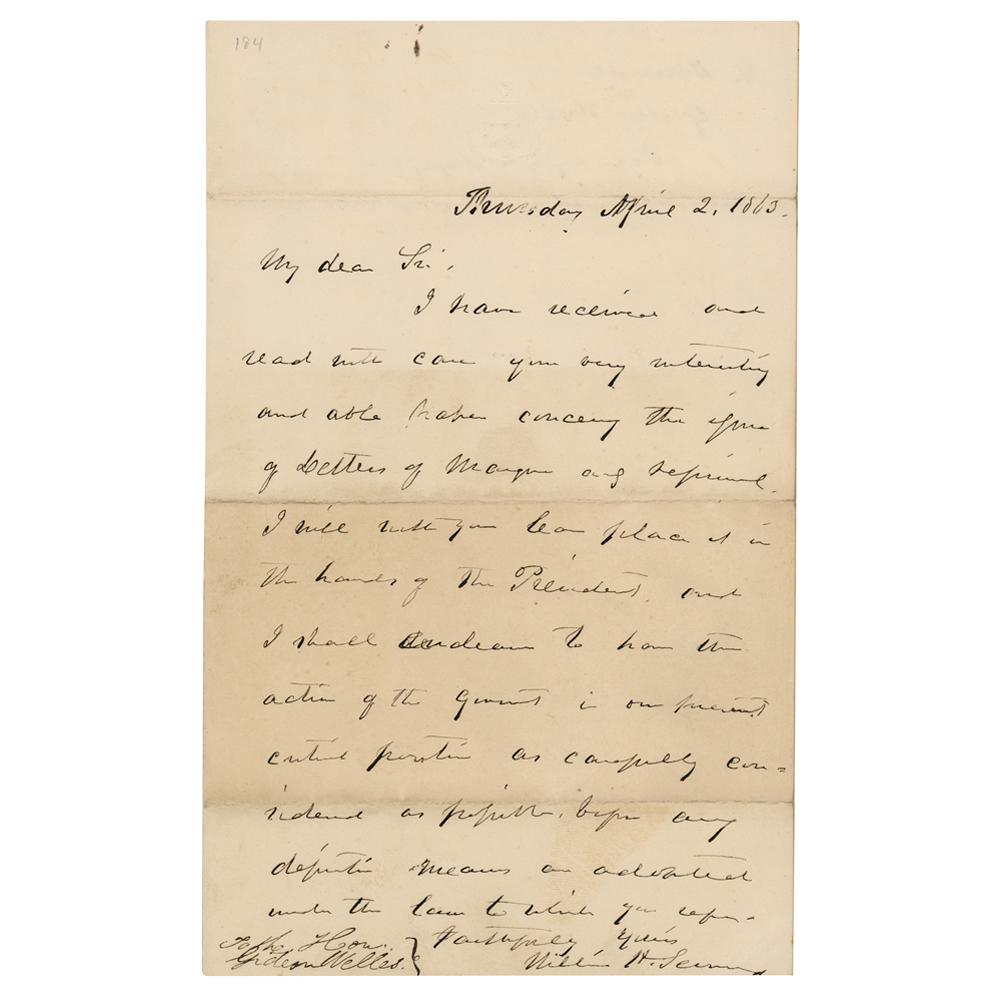 184
Thursday April 2, 1863.
My dear Sir,
I have received and
read with care your very interesting
and able paper concerng the issue
of Letters of Marque and reprisal.
I will with your leave place it in
the hands of the President, and
I shall endeavor to have the
action of the Governt in our present
critical position as carefully con=
sidered as possible, before any
definitive means are adopted
under the law to which you refer.
Faithfully yours
To the Hon. William H. Seward
Gideon Welles.